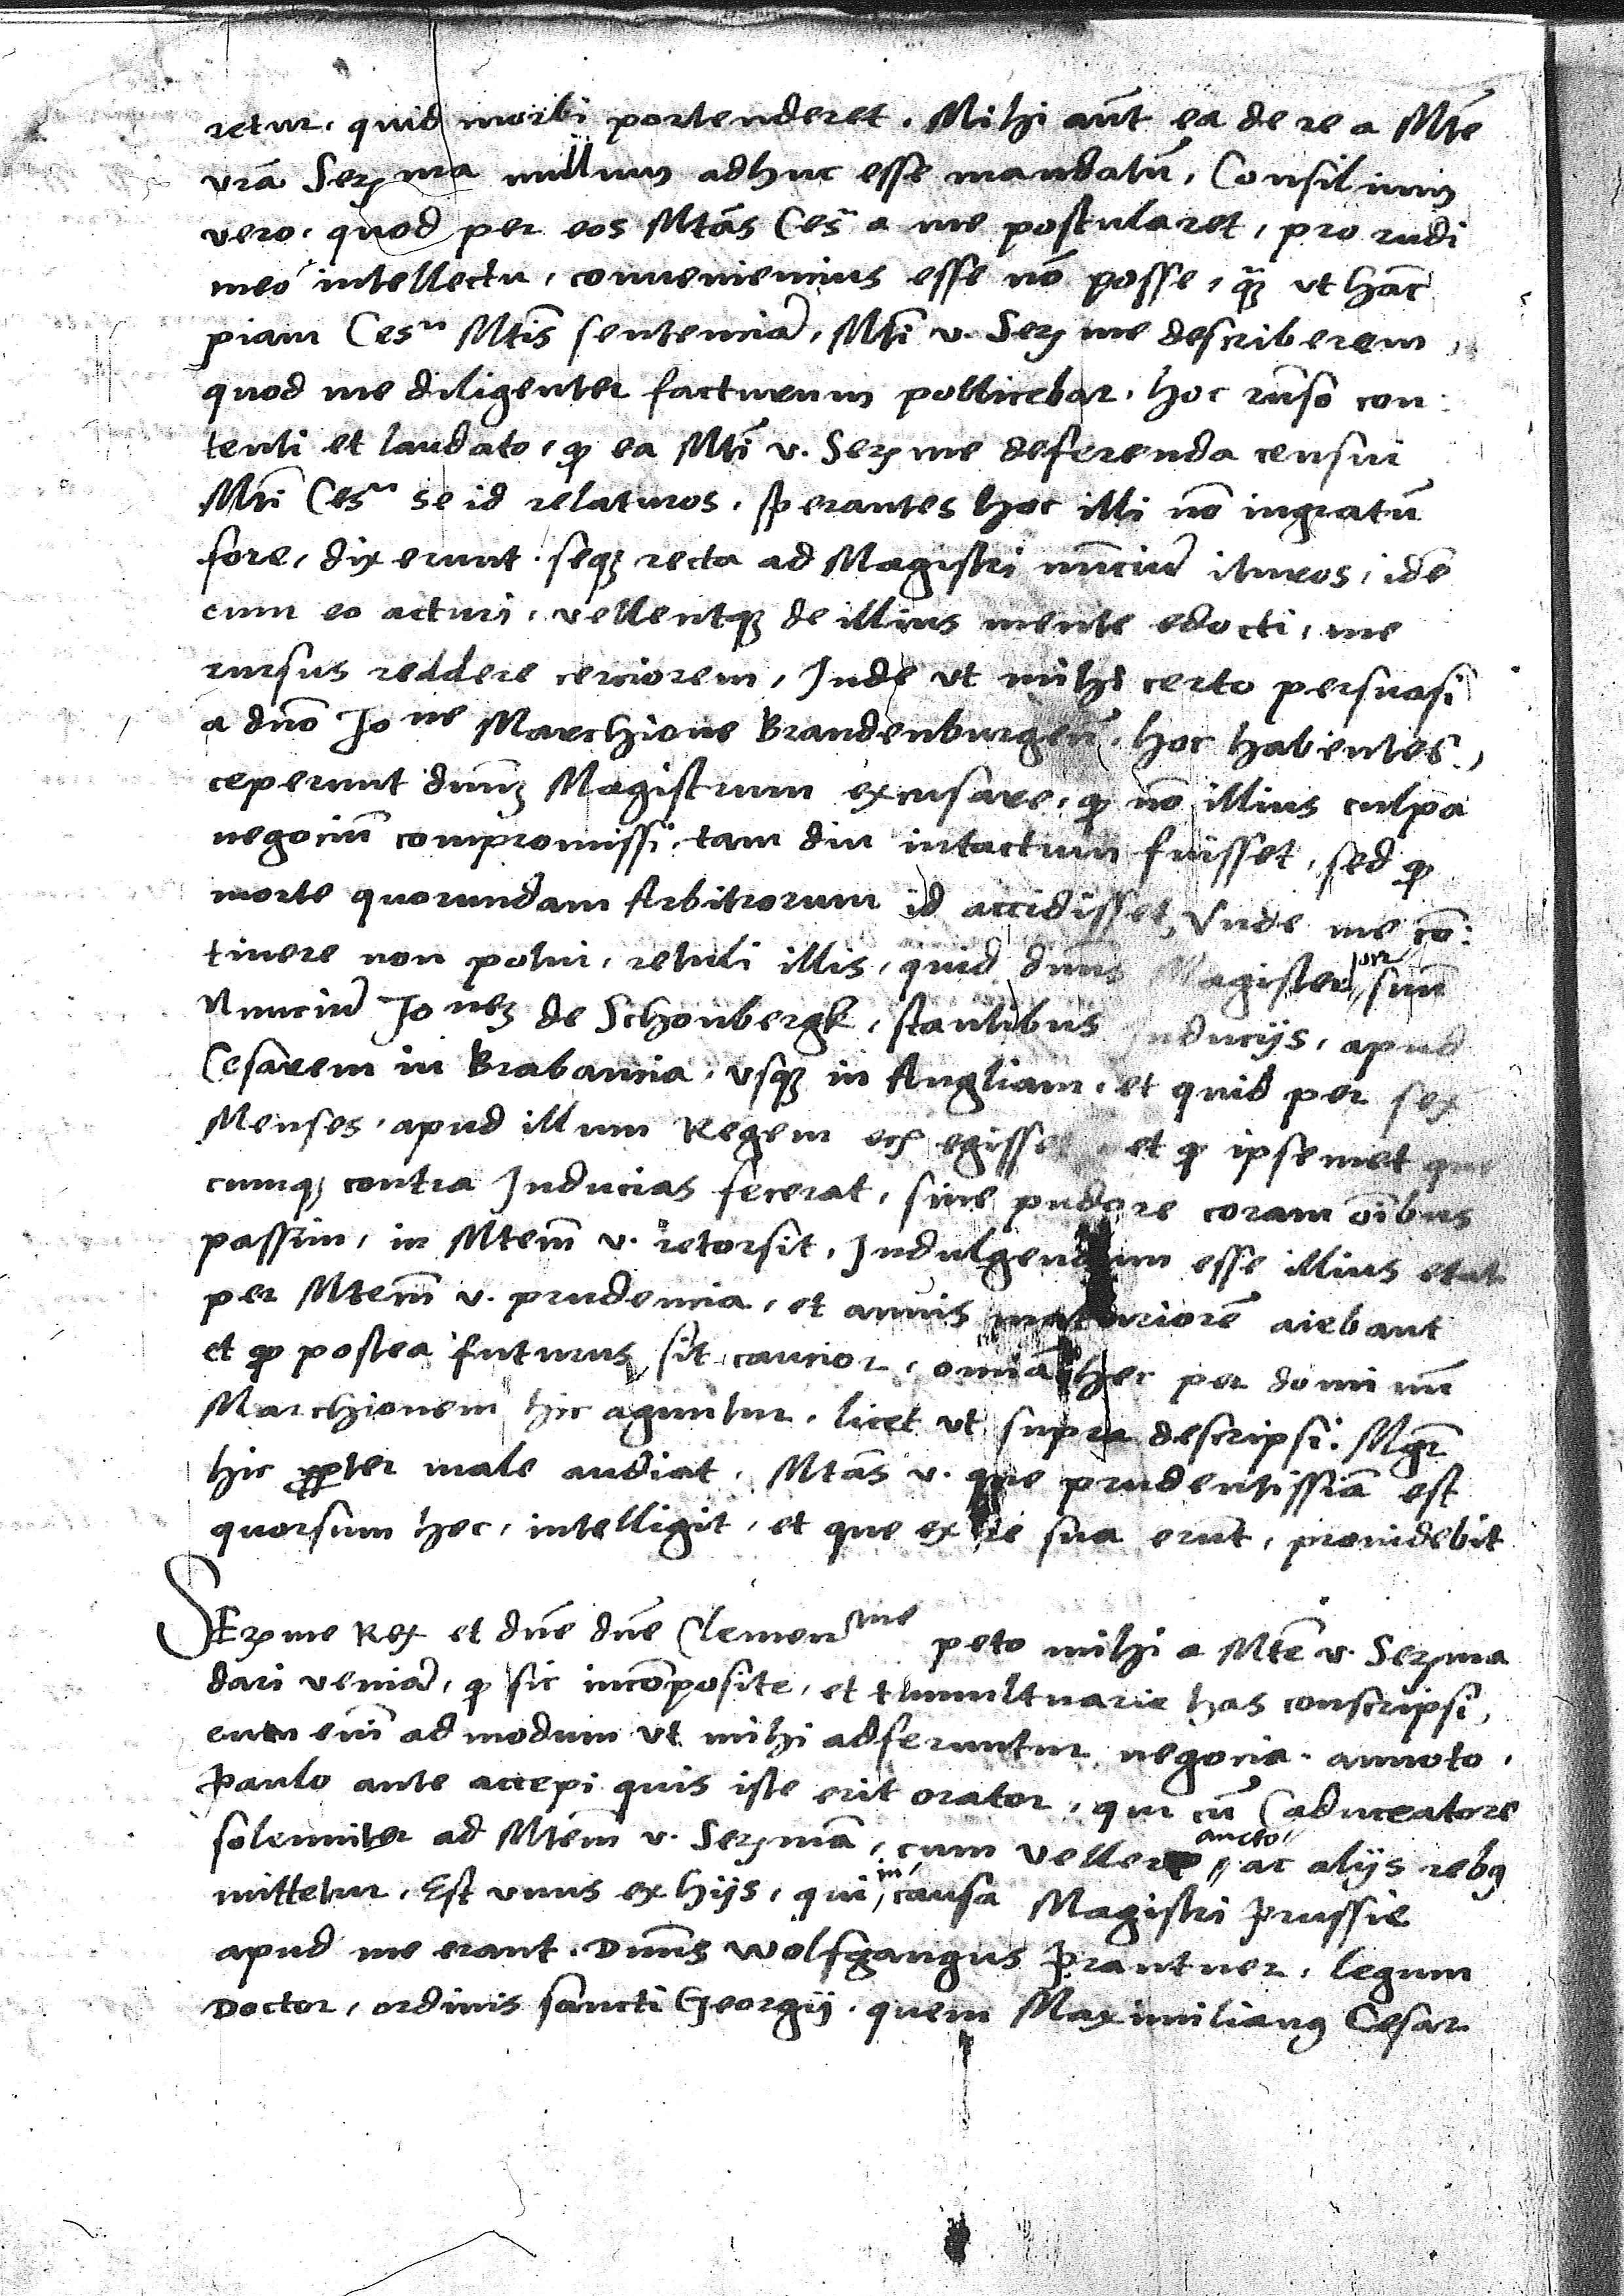 retur, quid morbi portenderet. Mihi aut̄ ea de re a Mte
vrā Serma nullum adhuc esse mandatū, Consilium
vero, quod per eos Mtās Ces. a me postularet, pro rudi
meo intellectu, convenienciũs esse nō posse, q̄ȝ vt hāc
piam Ces. Mtis sentenciā, Mti v. Serme describerem,
quod me diligenter facturum pollicebar. hoc rūso con:
tenti et laudato, qꝫ ea Mti v. Serme deferenda censui
Mti Ces. se id relaturos, sperantes hoc illi nō ingratū
fore, dixerunt. seqꝫ recta ad Magistri nūnciū ituros, idē
cum eo acturi, vellentqꝫ de illius mente edocti, me
rursus reddere cerciorem, Inde vt mihi certo persuasi
a dno Jo ne Marchione Brandenburgeñ. hoc habentes,
ceperunt dnm̄ Magistrum excusare, qꝫ nō illius culpa
negociū compromissi, tam diu intactum fuisset, sed qꝫ
morte quorundam Arbitrorum id accidisset, Vnde me cō:
tinere non potui, retuli illis, quid dnūs Magister per suū
Nunciū Jo neȝ de Schonbergk, stantibus Induciis, apud
Cesarem in Brabancia, vsqꝫ in Angliam, et quid per sex
Menses, apud illum Regem etc egisset, et qꝫ ipsemet que
cunqꝫ contra Inducias fecerat, sine pudore coram oībus
passim, in Mtem̄ v. retorsit, Indulgendum esse illius etati
per Mtem̄ v. prudencia, et annis maturiorē aiebant
et qꝫ postea futurus sit caucior, omnia hec per dominū
Marchionem hic aguntur, licet vt supra descripsi. Mgr̄
hic propter male audiat. Mtās v. que prudentissīa est
quorsum hec, intelligit, et que ex re sua erūt, prouidebit
SErme Rex et dne dne Clemenme peto mihi a Mte v. Serma
dari veniā, qꝫ sic incōposite, et tumultuarie has conscripsi,
eum eni ad modum vt mihi adferuntur negocia, annoto,
Paulo ante accepi quis iste erit orator, qui cū Caduceatore
solenniter ad Mtem̄ v. Sermā, cum vellere aucto ac aliis rebꝰ
mittetur, Est vnus ex hiis, qui in causa Magistri Prussie
apud me erant. Dnūs Wolfgangus Prantner, legum
Doctor, ordinis sancti Georgii, quem Maximilianꝰ Cesar